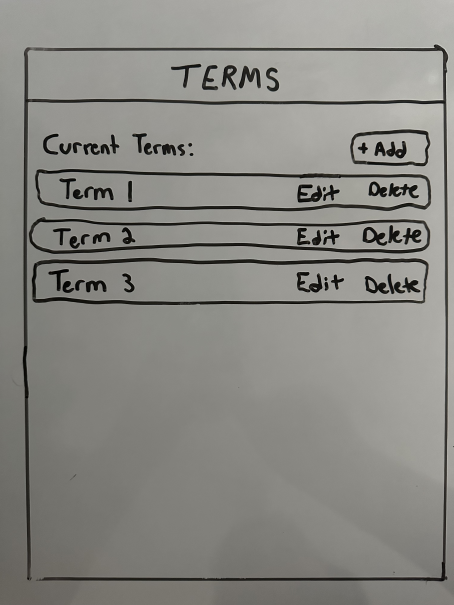 TERMS
Current Terms: + Add
Term 1 Edit Delete
Term 2 Edit Delete
Term 3 Edit Delete